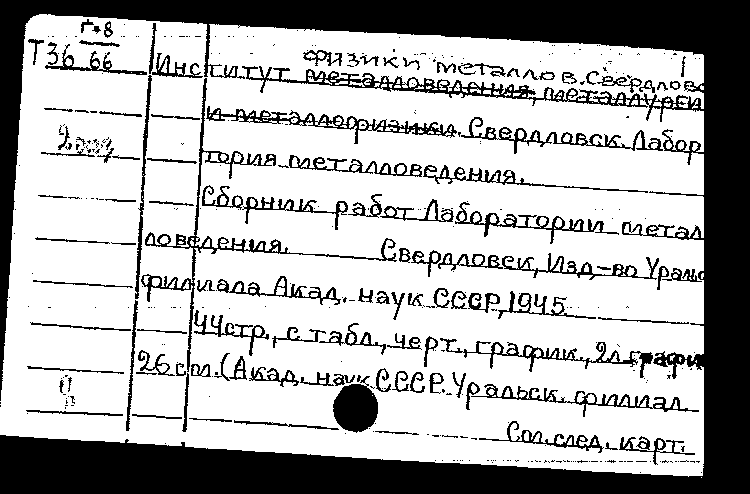 Г-8
Т36 66
физики металлов. Свердловс
Институт металловедения, металлурги
и металлофизики. Свердловск. Лабор
тория металловедения.
Сборник работ Лаборатории метал
ловедения. Свердловск, Изд-во Уральс
филиала Акад. наук СССР, 1945
44стр., с табл., черт., график., 2л. график
26 см. (Акад. наук СССР. Уральск. филиал.
См. след. карт.